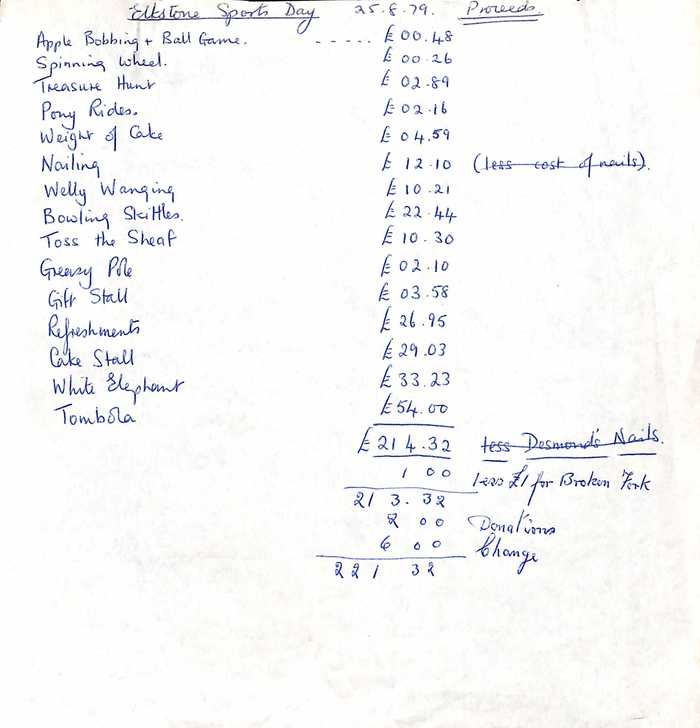 Elkstone Sports Day 25.8.79. Proceeds
Apple Bobbing + Ball Game. ----- £00.48
Spinning Wheel. £00.26
Treasure Hunt £02.89
Pony Rides. £02.16
Weight of Cake £04.59
Nailing £12.10 (less cost of nails).
Welly Wanging £10.21
Bowling Skittles. £22.44
Toss the Sheaf £10.30
Greasy Pole £02.10
Gift Stall £03.58
Refreshments £26.95
Cake Stall £29.03
White Elephant £33.23
Tombola £54.00
£214.32 less Desmond's Nails.
1 00 less £1 for Broken Fork
213.32
2 00 Donations
6 00 Change
221 32